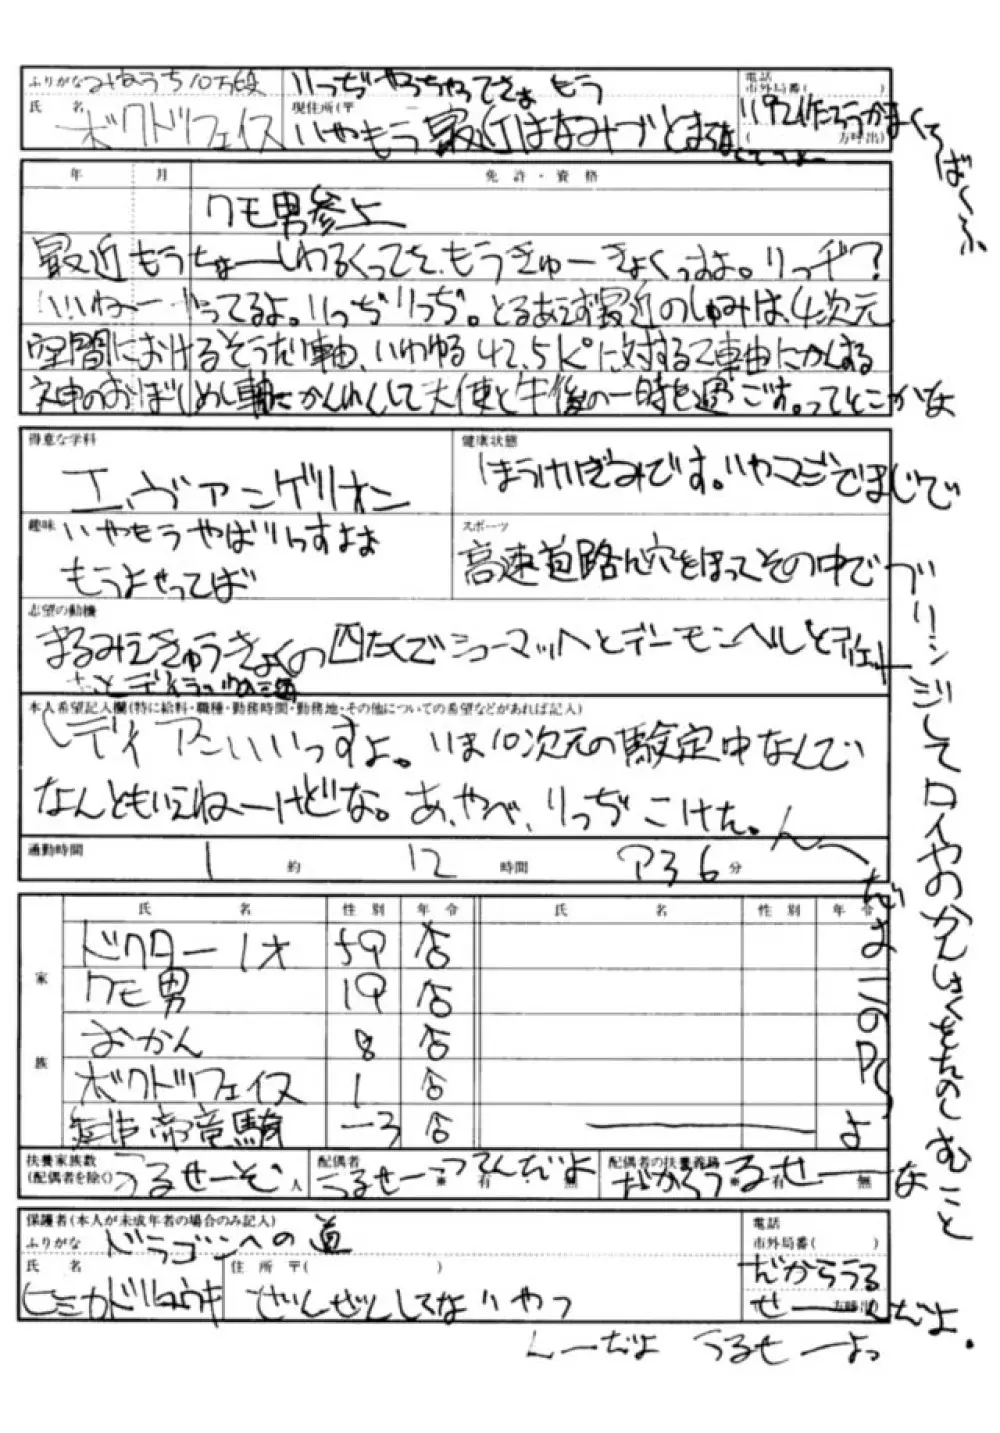 ふりがな みねうち10万段
りっぢやっちゃってさぁ もう
電話
市外局番( )
氏 名 ボクドリフェイス
現住所(〒 ー
いやもう最近はなみづとまらな
( 方呼出)
くてばくふ
年 月 免許・資格
クモ男参上
最近もうちょーしわるくってさ、もうきゅーきょくっすよ。りっヂ?
いいねー やってるよ。りっぢりっぢ。とるあえず最近のしゅみは、4次元
空間におけるそうたい軸、いわゆる42.5K°に対するZ軸にかんする
神のおぼしめし軸にかんれんして天使と午後の一時を過ごす。ってとこかな
得意な学科
エヴァンゲリオン
健康状態
ほうけいぎみです。いやマジでまじで
趣味 いやもうやばいっすよまぁ
もうよせってば
スポーツ
高速道路に穴をほってその中で
ブリッジしてロイヤのかんしょくをたのしむこと
志望の動機
まるみえきゅうきょくの四たくでシューマッハとデーモンヘルとディ
本人希望記入欄(特に給料・職種・勤務時間・勤務地・その他についての希望などがあれば記入)
レディアンいいっすよ。いま10次元の験定中なんで
なんともいえねーけどな。あ、やべ、りっぢこけた。
んーだよこのPCよ
通勤時間 1 約 12 時間 736 分
氏 名 性別 年令 氏 名 性別 年令
家族
ドクター1才 59 合
クモ男 19 合
おかん 8 合
ボクドリフェイス 1 合
帝竜騎 -3 合
扶養家族数
(配偶者を除く) うるせーぞ 人
配偶者
うるせーってんだよ ※有 無
配偶者の扶養義務
だからうるせーな ※有 無
保護者(本人が未成年者の場合のみ記入)
ふりがな ドラゴンへの道
電話
市外局番( )
氏 名
ヒミカドリュウキ
住所 〒( )
ぜんぜんしてないやつ
だからうる
せーんだよ。
方呼出)
んーだよ うるせーよっ